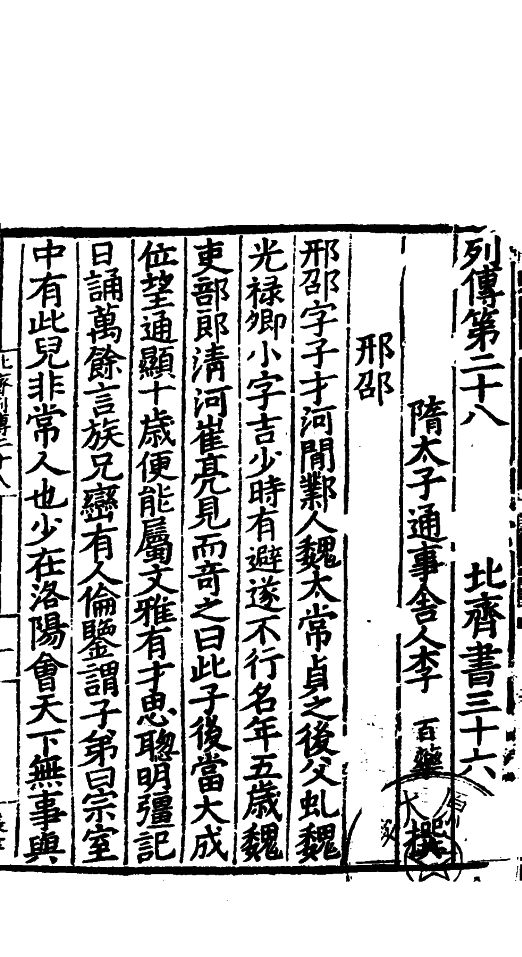 列傳第二十八 北齊書三十六
隋太子通事舍人李 百藥 撰
邢邵
邢邵字子才河閒鄚人魏太常貞之後父虬魏
光祿卿小字吉少時有避遂不行名年五歲魏
吏部郎清河崔亮見而奇之曰此子後當大成
位望通顯十歲便能屬文雅有才思聰明彊記
日誦萬餘言族兄巒有人倫鑒謂子弟曰宗室
中有此兒非常人也少在洛陽會天下無事與